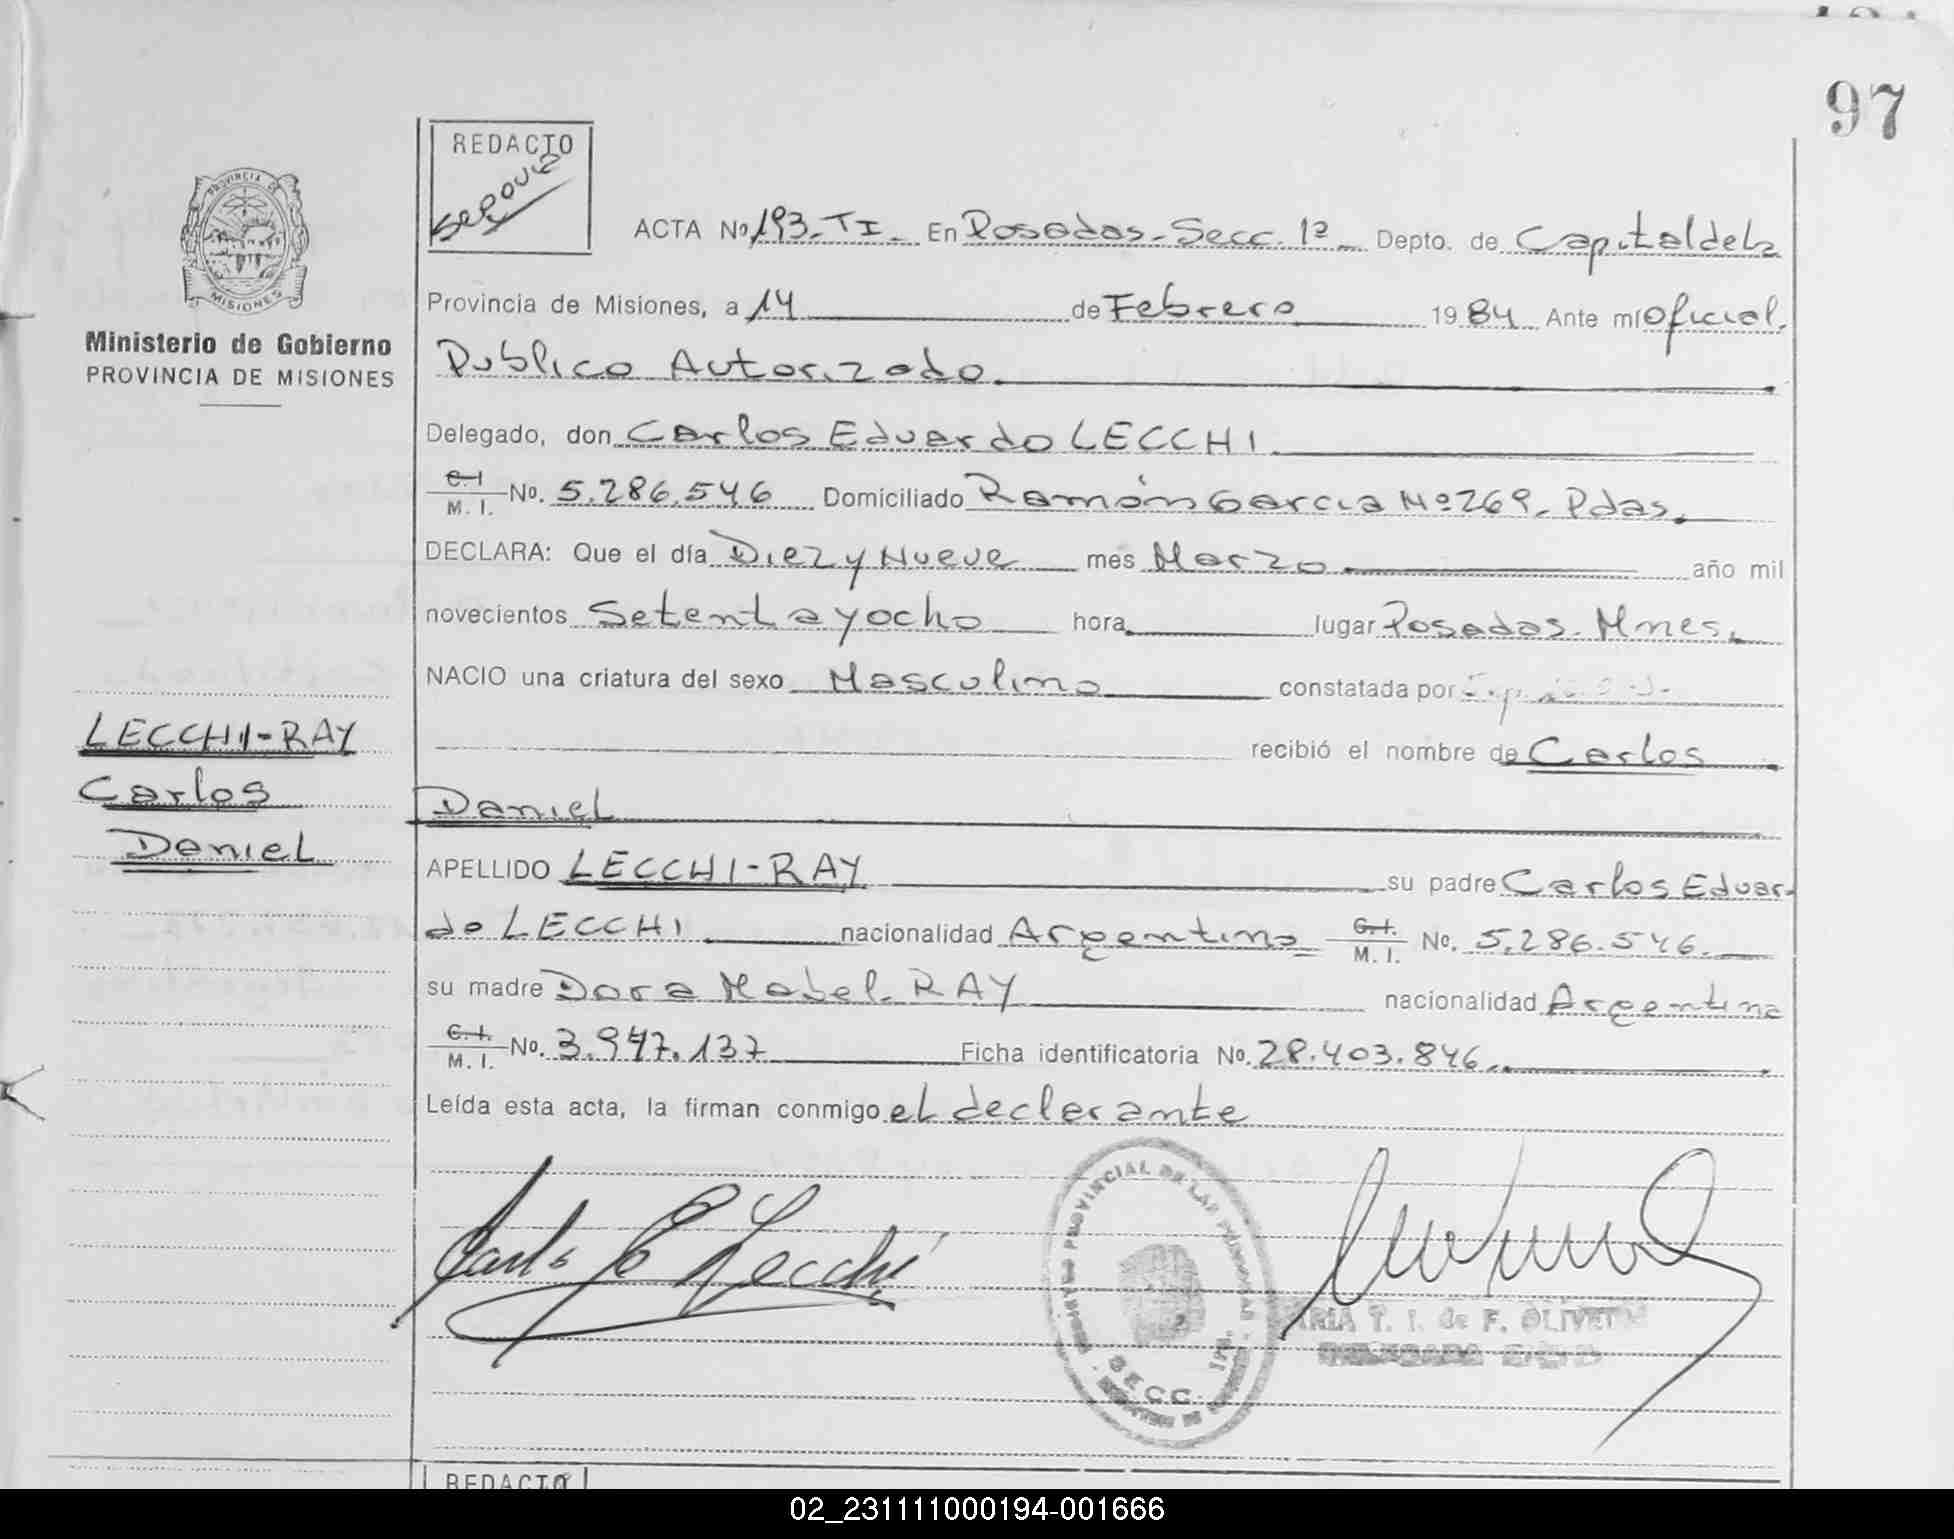 97
REDACTO
Segovia
PROVINCIA DE
MISIONES
Ministerio de Gobierno
PROVINCIA DE MISIONES
ACTA No 193-TI- En Posadas-Secc. 1ª Depto. de Capital de la
Provincia de Misiones, a 14 de Febrero 1984 Ante mí Oficial
Publico Autorizado.
Delegado, don Carlos Eduardo LECCHI
C.I
M. I. No. 5.286.546 Domiciliado Ramón Garcia Nº 269. Pdas.
DECLARA: Que el día Diez y Nueve mes Marzo año mil
novecientos Setenta y ocho hora lugar Posadas. Mnes.
NACIO una criatura del sexo Masculino constatada por
recibió el nombre de Carlos
Daniel
LECCHI-RAY
Carlos
Daniel
APELLIDO LECCHI-RAY su padre Carlos Eduar-
do LECCHI nacionalidad Argentino C.I. M. I. No. 5.286.546.
su madre Dora Mabel RAY nacionalidad Argentina
C.I. M. I. No. 3.947.137 Ficha identificatoria No. 28.403.846.
Leída esta acta, la firman conmigo el declarante
Carlos E Lecchi
PROVINCIAL DE LAS PERSONAS
SECC. 1RA.
T. I. de F. OLIVET
REDACTO
02_231111000194-001666